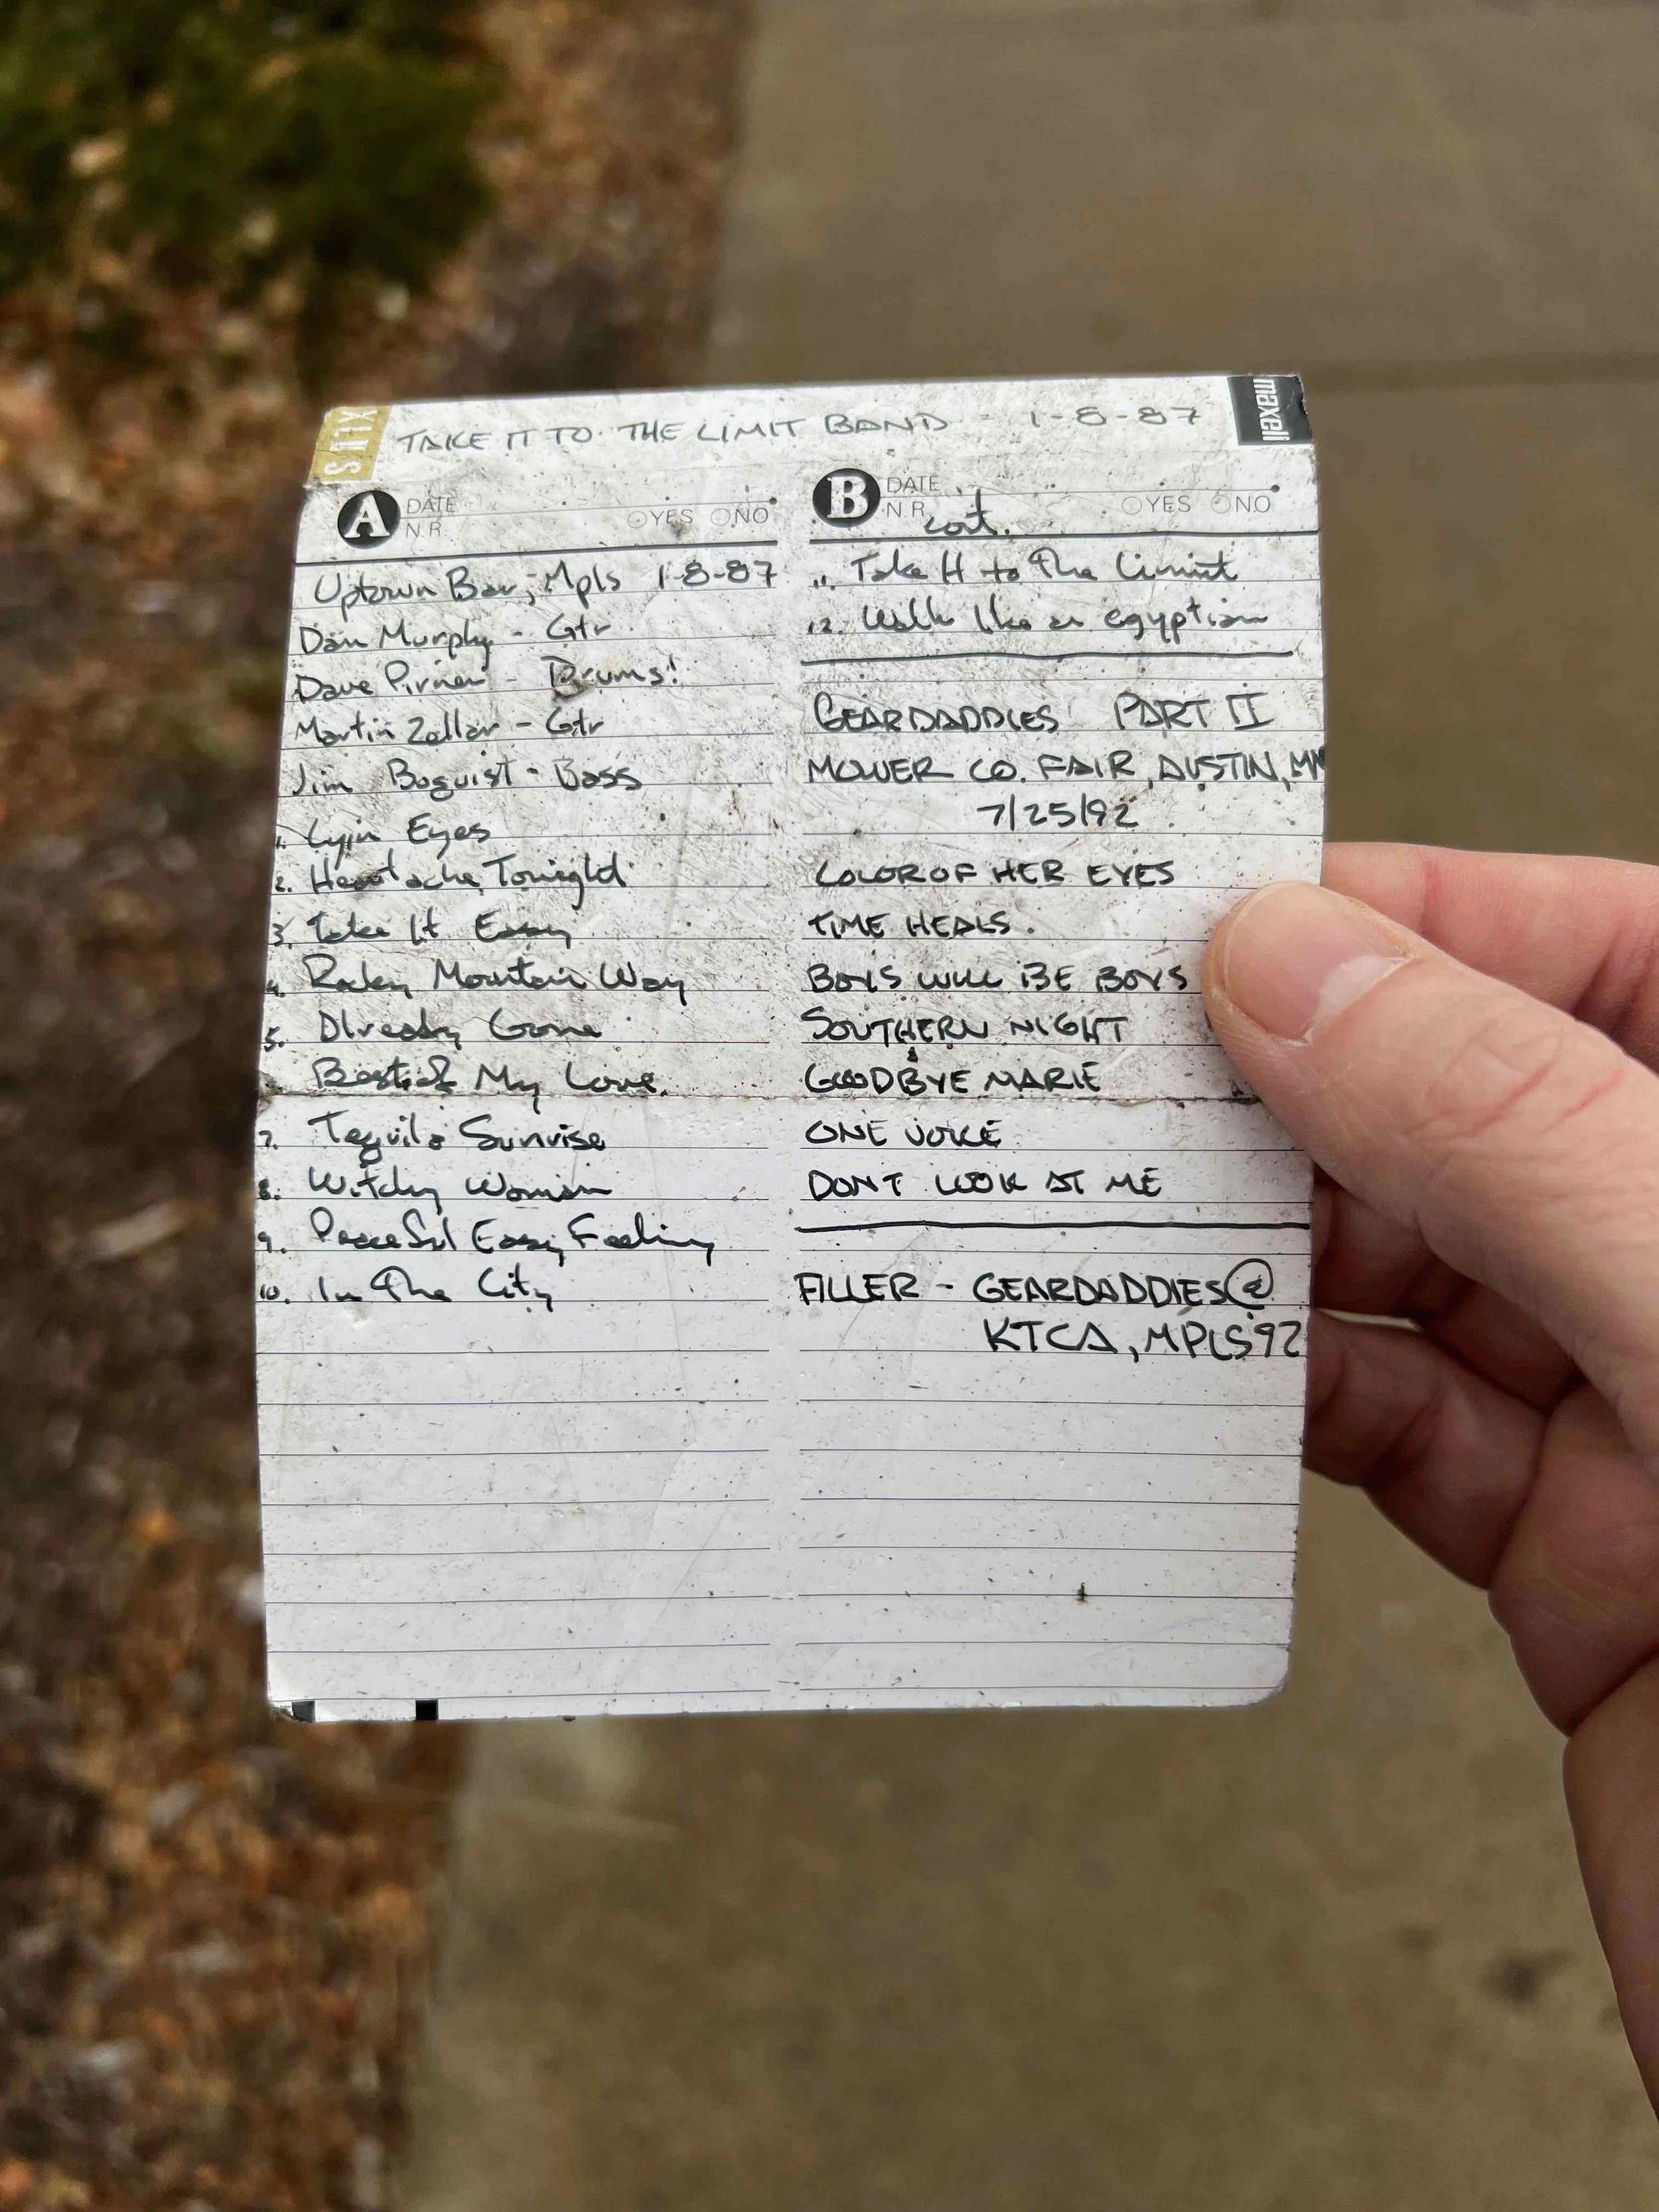 XLII S
TAKE IT TO THE LIMIT BAND - 1-8-87
maxell
A DATE
N.R. YES NO
Uptown Bar, Mpls 1-8-87
Dan Murphy - Gtr
Dave Pirner - Drums!
Martin Zellar - Gtr
Jim Boquist - Bass
1. Lyin Eyes
2. Heartache Tonight
3. Take It Easy
4. Rocky Mountain Way
5. Already Gone
Best of My Love
7. Tequila Sunrise
8. Witchy Woman
9. Peaceful Easy Feeling
10. In The City
B DATE
N.R. YES NO
cont.
11. Take It to The Limit
12. Walk like an egyptian
GEARDADDIES PART II
MOWER CO. FAIR, AUSTIN, MN
7/25/92
COLOR OF HER EYES
TIME HEALS.
BOYS WILL BE BOYS
SOUTHERN NIGHT
GOODBYE MARIE
ONE VOICE
DONT LOOK AT ME
FILLER - GEARDADDIES @
KTCA, MPLS 92